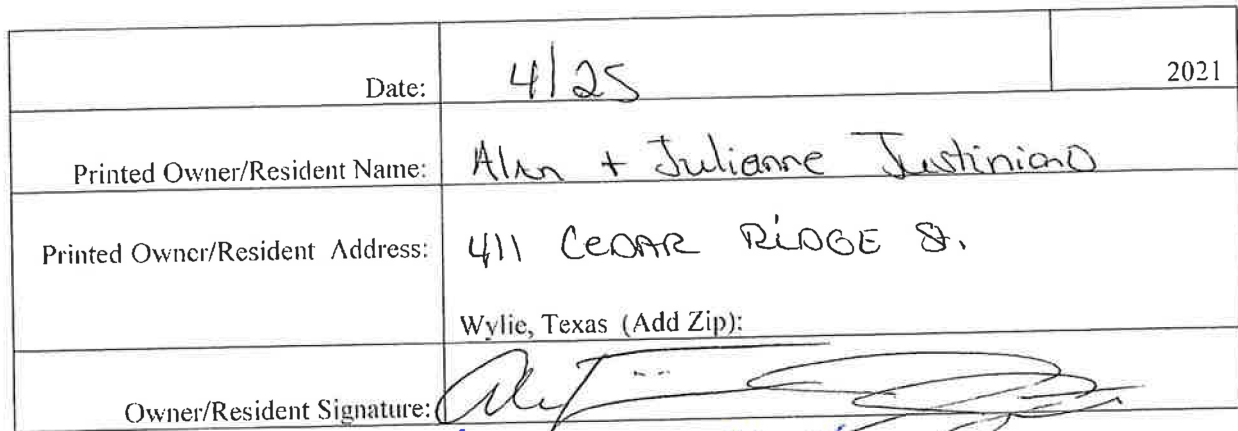 Date: 4/25 2021
Printed Owner/Resident Name: Alan + Julianne Justiniano
Printed Owner/Resident Address: 411 CEDAR RIDGE St.
Wylie, Texas (Add Zip):
Owner/Resident Signature: